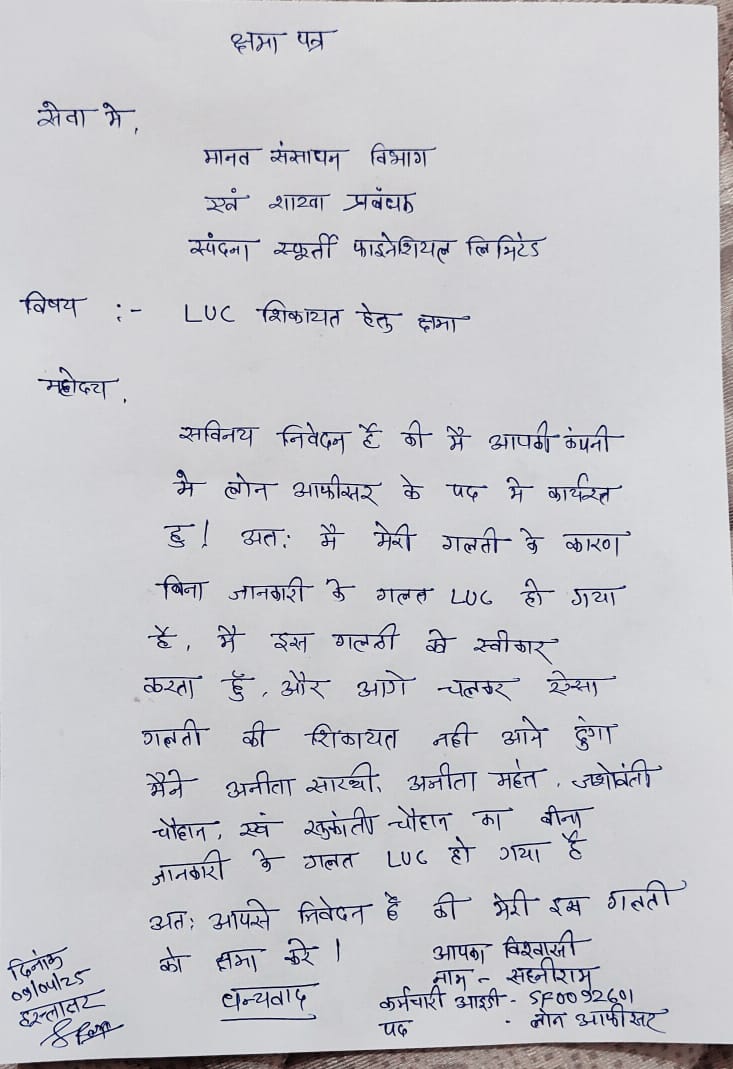 क्षमा पत्र
सेवा मे,
मानव संसाधन विभाग
एवं शाखा प्रबंधक
स्पंदना स्फूर्ती फाइनेशियल लिमिटेड
विषय :- LUC शिकायत हेतु क्षमा
महोदय,
सविनय निवेदन है की मै आपकी कंपनी
मे लोन आफीसर के पद मे कार्यरत
हु! अतः मै मेरी गलती के कारण
बिना जानकारी के गलत LUC हो गया
है, मै इस गलती को स्वीकार
करता हुँ, और आगे चलकर ऐसा
गलती की शिकायत नही आने दुंगा
मैने अनीता सारथी, अनीता महंत, जशोवंती
चौहान, एवं सुकांती चौहान का बीना
जानकारी के गलत LUC हो गया है
अतः आपसे निवेदन है की मेरी इस गलती
को क्षमा करे।
धन्यवाद
आपका विश्वासी
नाम - सहनीराम
कर्मचारी आइडी - SF0092601
पद - लोन आफीसर
दिनांक
09/04/25
हस्ताक्षर